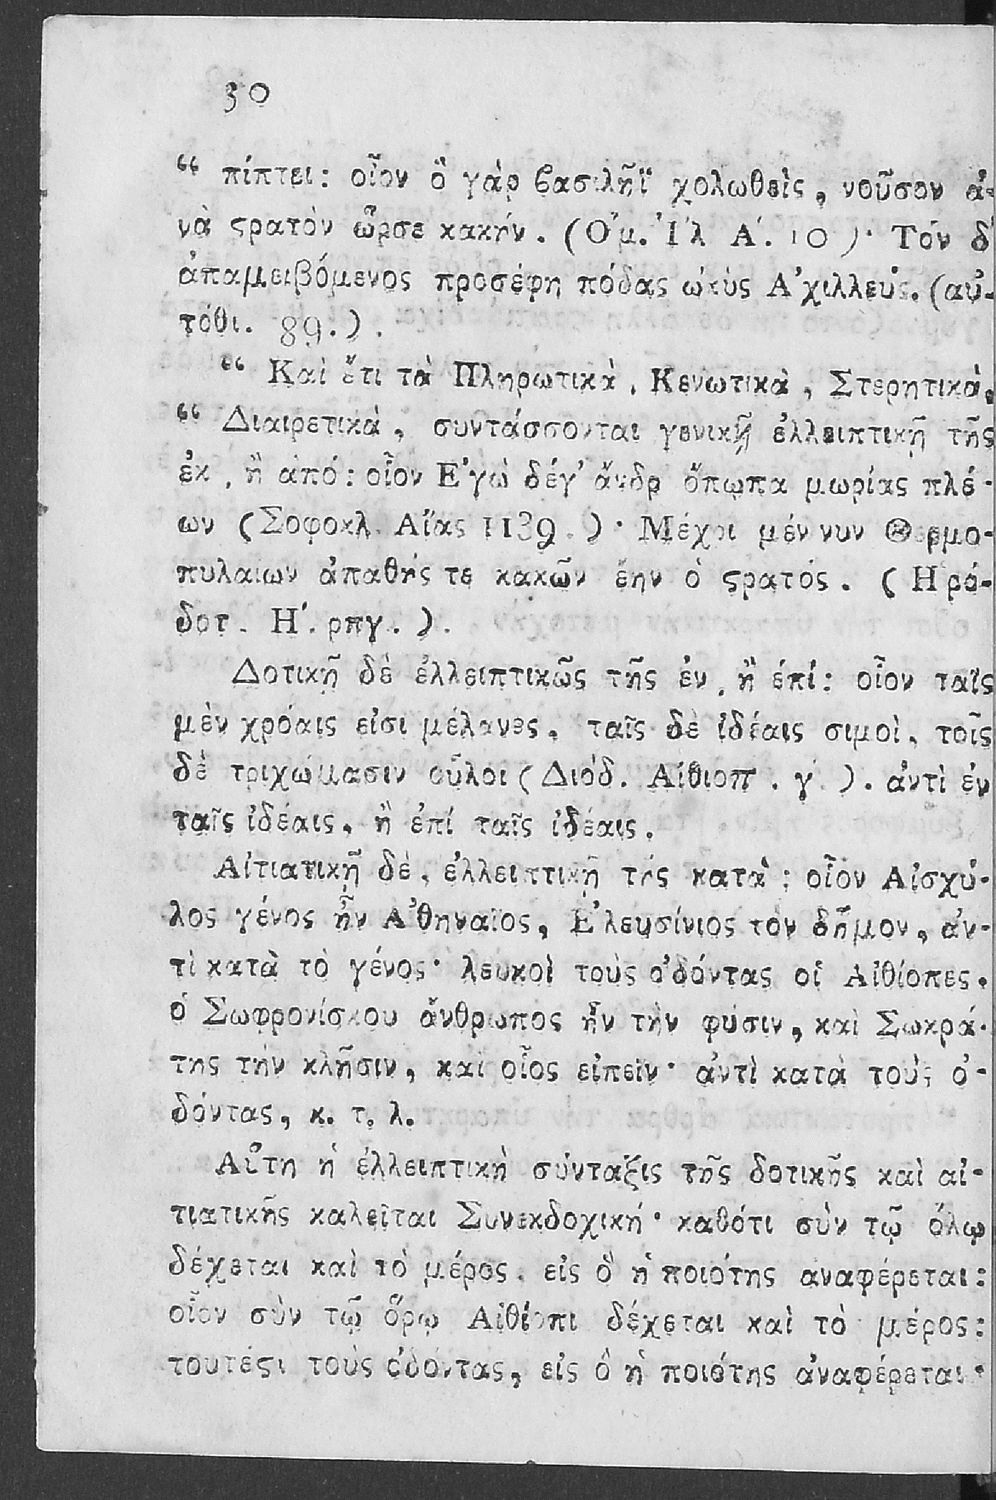 30
“ πίπτει: οἷον ὃ γὰρ βασιλῆϊ χολωθεὶς, νοῦσον ἀ-
νὰ ςρατὸν ὦρσε κακήν. (Ὁμ. Ἰλ Α΄. 10)· Τὸν δ'
ἀπαμειβόμενος προσέφη πόδας ὠκὺς Ἀχιλλεύς. (αὐ-
τόθι. 89.).
“ Καὶ ἔτι τὰ Πληρωτικὰ, Κενωτικὰ, Στερητικὰ,
“ Διαιρετικὰ, συντάσσονται γενικῇ ἐλλειπτικῇ τῆς
ἐκ, ἢ ἀπό: οἷον Ἐγὼ δέγ' ἄνδρ ὄπωπα μωρίας πλέ-
ων (Σοφοκλ. Αἴας 1139.)· Μέχρι μέν νυν Θερμο-
πυλαίων ἀπαθής τε κακῶν ἔην ὁ ςρατός. (Ἡρό-
δοτ. Η΄. ρπγ.).
Δοτικῇ δὲ ἐλλειπτικῶς τῆς ἐν, ἢ ἐπί: οἷον ταῖς
μὲν χρόαις εἰσι μέλανες, ταῖς δὲ ἰδέαις σιμοὶ, τοῖς
δὲ τριχώμασιν οὖλοι (Διόδ. Αἰθιοπ. γ΄). ἀντὶ ἐν
ταῖς ἰδέαις, ἢ ἐπί ταῖς ἰδέαις.
Αἰτιατικῇ δὲ, ἐλλειπτικῇ τῆς κατὰ: οἷον Αἰσχύ-
λος γένος ἦν Ἀθηναῖος, Ἐλευσίνιος τὸν δῆμον, ἀν-
τὶ κατὰ τὸ γένος· λευκοὶ τοὺς ὀδόντας οἱ Αἰθίοπες.
ὁ Σωφρονίσκου ἄνθρωπος ἦν τὴν φύσιν, καὶ Σωκρά-
της τὴν κλῆσιν, καὶ οἷος εἰπεῖν· ἀντὶ κατὰ τοὺς ὀ-
δόντας, κ. τ. λ.
Αὕτη ἡ ἐλλειπτικὴ σύνταξις τῆς δοτικῆς καὶ αἰ-
τιατικῆς καλεῖται Συνεκδοχική· καθότι σὺν τῷ ὅλῳ
δέχεται καὶ τὸ μέρος, εἰς ὃ ἡ ποιότης ἀναφέρεται:
οἷον σὺν τῷ ὅρῳ Αἰθίοπι δέχεται καὶ τὸ μέρος:
τουτέςι τοὺς ὀδόντας, εἰς ὃ ἡ ποιότης ἀναφέρεται·